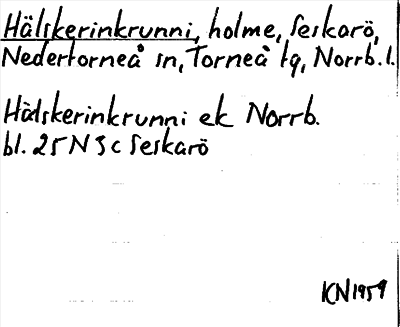 Hälskerinkrunni, holme, Seskarö,
Nedertorneå sn, Torneå tg, Norrb. l.
Hälskerinkrunni ek Norrb.
bl. 25 N 3 c Seskarö
KN 1959